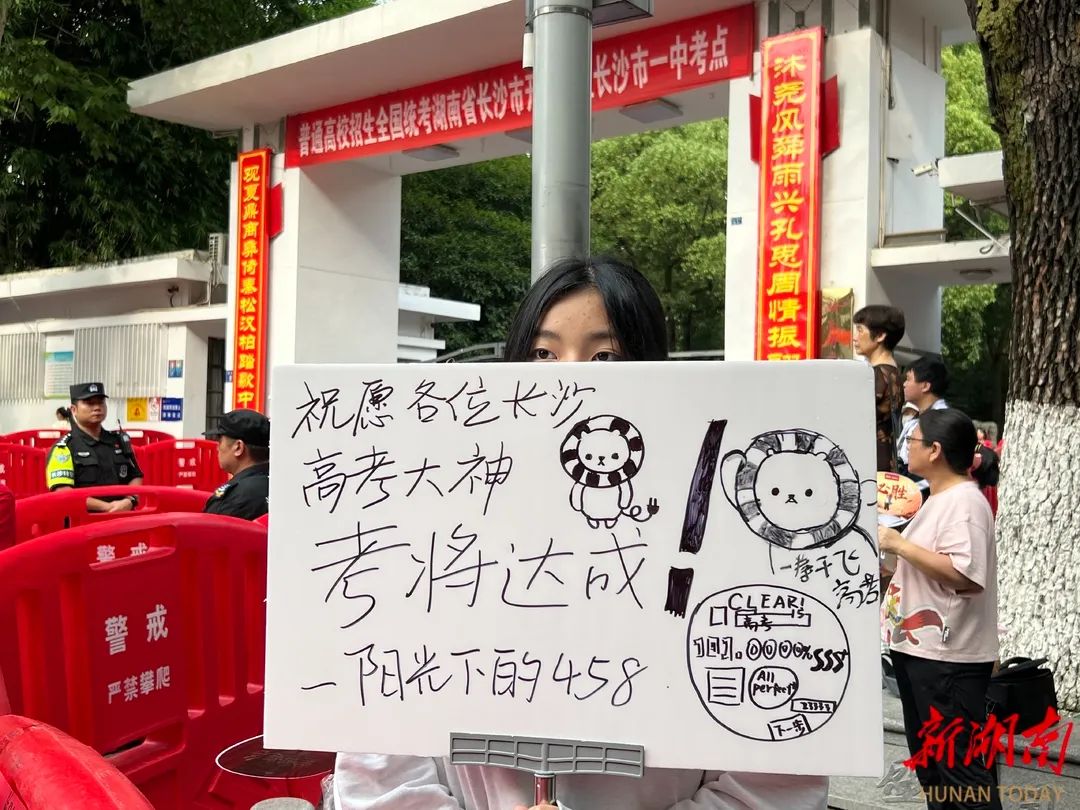 普通高校招生全国统考湖南省长沙市开
长沙市一中考点
观夏鼎商彝倚秦松汉柏踏歌中
沐尧风舜雨兴孔思周情振
祝愿各位长沙
高考大神
考将达成!
—阳光下的458
一拳干飞
高考
CLEAR!
15
高考
101.0000% SSS+
All
perfect+
下一步
警戒
警戒
严禁攀爬
必胜
新湖南
HUNAN TODAY